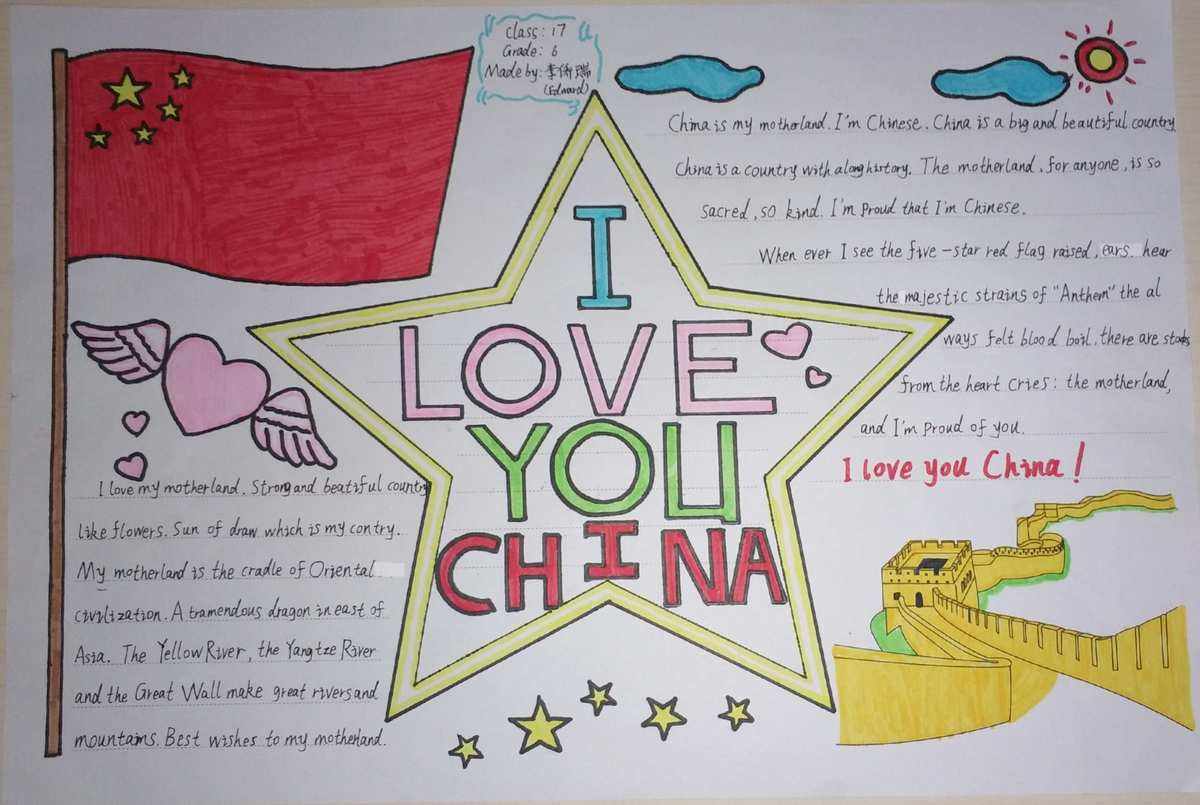 Class: 17
Grade: 6
Made by: 李侨瑞
(Edward)
China is my motherland. I'm Chinese. China is a big and beautiful country
China is a country with a long history. The motherland, for anyone, is so
sacred, so kind. I'm proud that I'm Chinese.
When ever I see the five-star red flag raised, ears hear
the majestic strains of "Anthem" the al
ways felt blood boil. there are
from the heart cries: the motherland,
and I'm proud of you.
I love you China!
I
LOVE
YOU
CHINA
I love my motherland. Strong and beatiful country
like flowers. Sun of draw which is my contry.
My motherland is the cradle of Oriental
civilization. A tramendous dragon in east of
Asia. The Yellow River, the Yangtze River
and the Great Wall make great rivers and
mountains. Best wishes to my motherland.